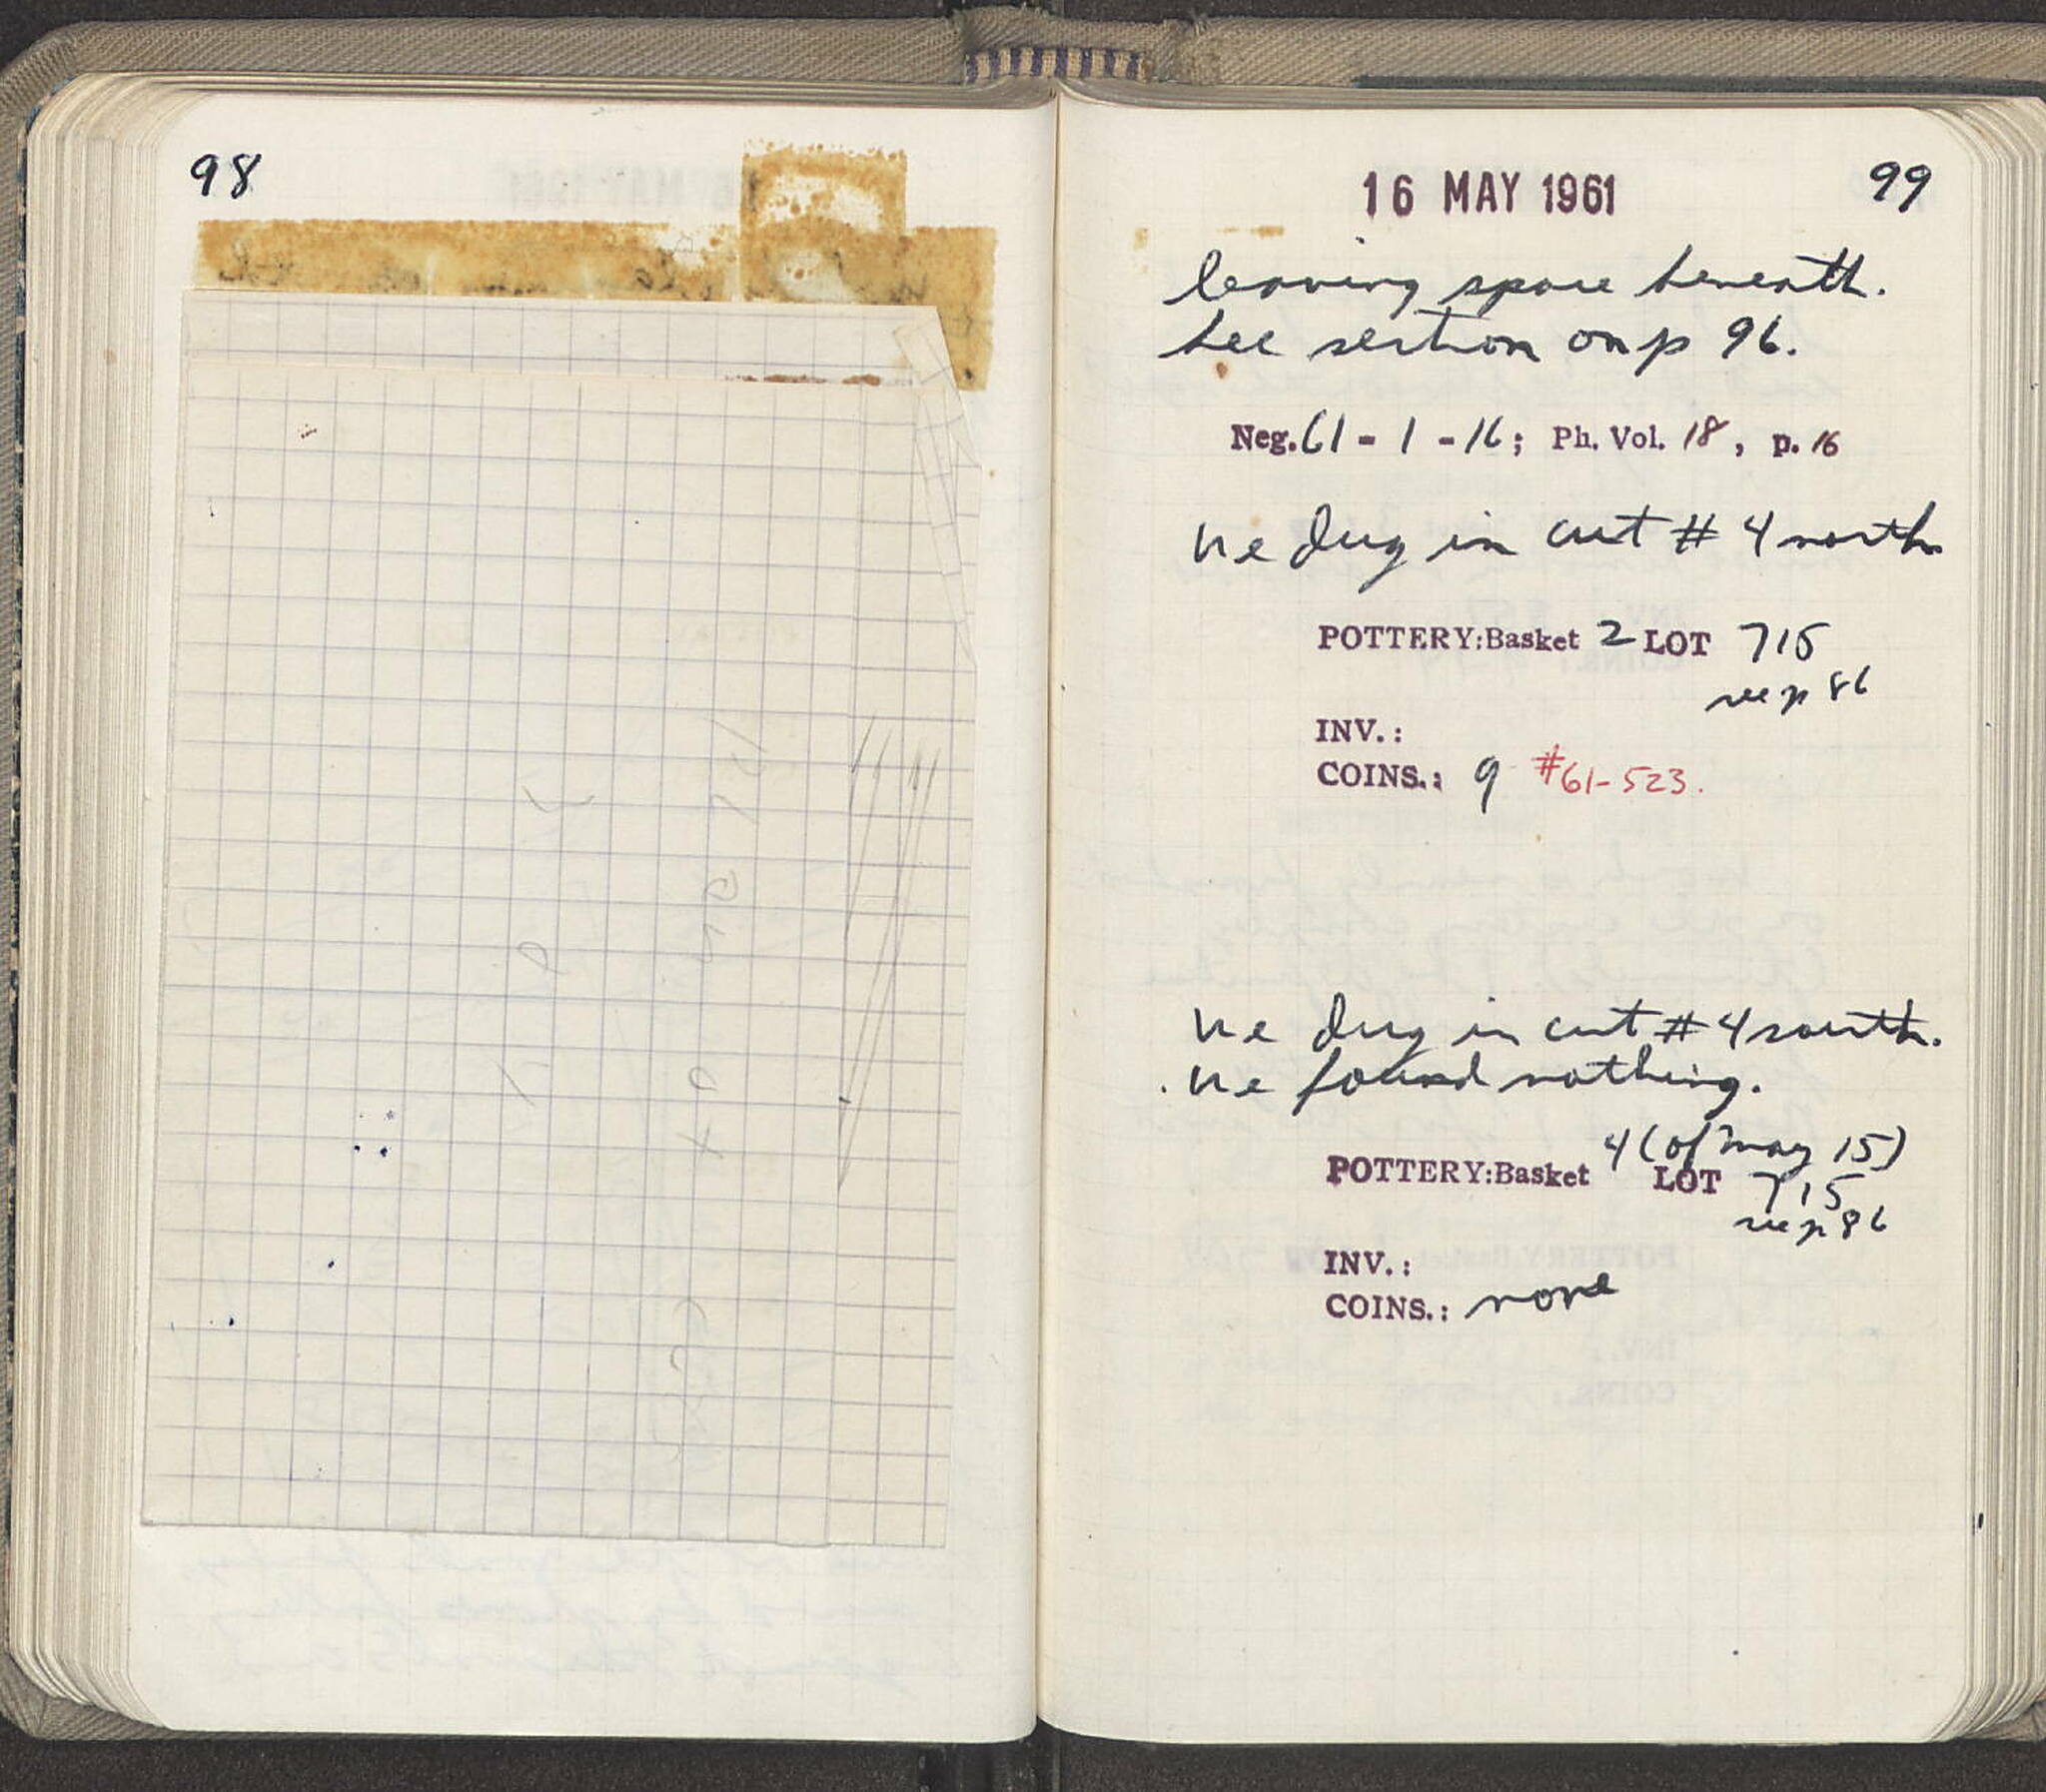 98
16 MAY 1961
99
leaving space beneath.
See section on p 96.
Neg. 61 - 1 - 16; Ph. Vol. 18, p. 16
We dug in cut # 4 north
POTTERY: Basket 2 LOT 715
see p 86
INV.:
COINS.: 9 #61-523.
We dug in cut # 4 south.
We found nothing.
4 (of May 15)
POTTERY: Basket LOT 715
see p 86
INV.:
COINS.: none